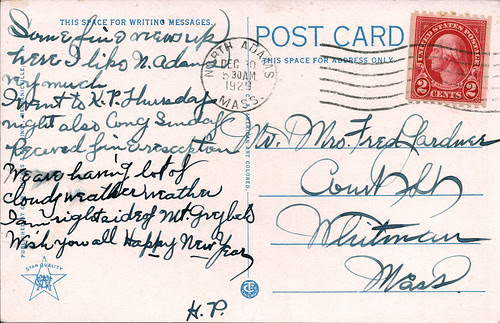 THIS SPACE FOR WRITING MESSAGES.
Some fine views up
here I like N. Adams
very much
I went to K.P. Thursday
night also Cong Sunday
Received fine reception
We are having lot of
cloudy weather weather
I am right side of Mt. Greylock
Wish you all Happy New Year
H.P.
STAR QUALITY
POST CARD
THIS SPACE FOR ADDRESS ONLY.
NORTH ADAMS
DEC 30
5 30 AM
1929
MASS.
UNITED STATES POSTAGE
2 CENTS 2
Mr. Mrs. Fred Gardner
Court St
Whitman
Mass